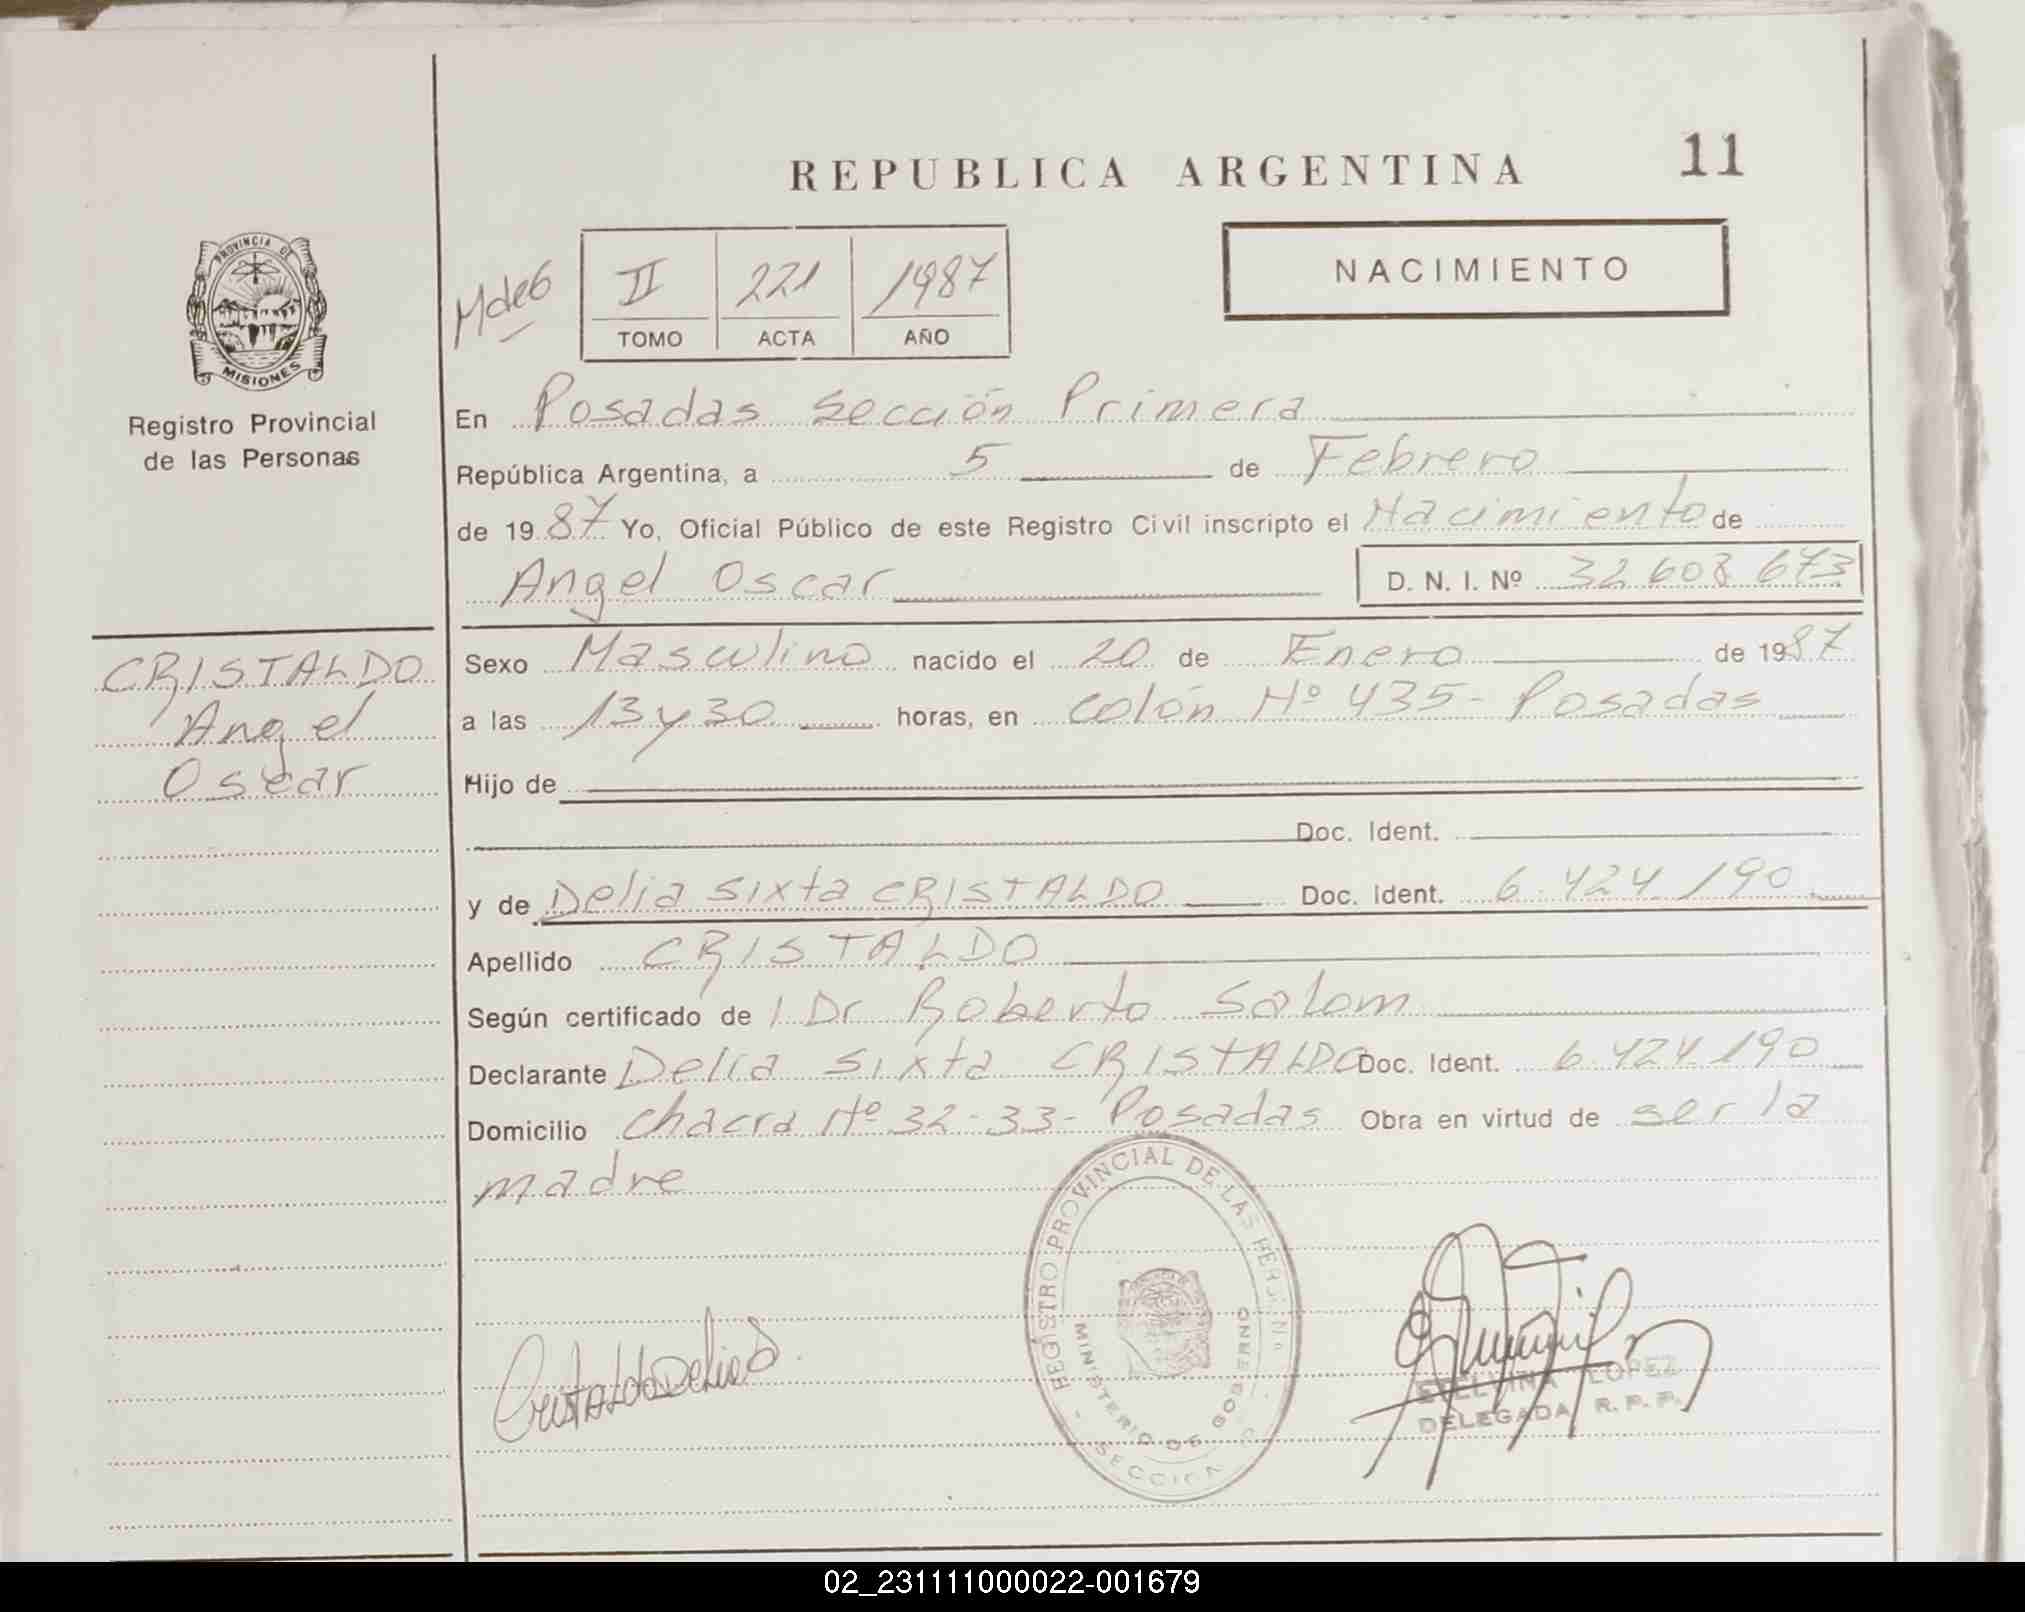 REPUBLICA ARGENTINA
11
PROVINCIA DE
MISIONES
Registro Provincial
de las Personas
II
221
1987
TOMO
ACTA
AÑO
NACIMIENTO
En Posadas Sección Primera
República Argentina, a 5 de Febrero
de 1987 Yo, Oficial Público de este Registro Civil inscripto el Nacimiento de
Angel Oscar D. N. I. Nº 32 608 673
CRISTALDO
Angel
Oscar
Sexo Masculino nacido el 20 de Enero de 1987
a las 13 y 30 horas, en Colón Nº 435 - Posadas
Hijo de
Doc. Ident.
y de Delia Sixta CRISTALDO Doc. Ident. 6.424.190
Apellido CRISTALDO
Según certificado de l Dr Roberto Salom
Declarante Delia Sixta CRISTALDO Doc. Ident. 6.424.190
Domicilio Chacra Nº 32-33- Posadas Obra en virtud de ser la
madre
REGISTRO PROVINCIAL DE LAS PERSONAS
MINISTERIO DE GOBIERNO
SECCION
Cristaldo Delia S.
LOPEZ
DELEGADA R. P. P.
02_231111000022-001679